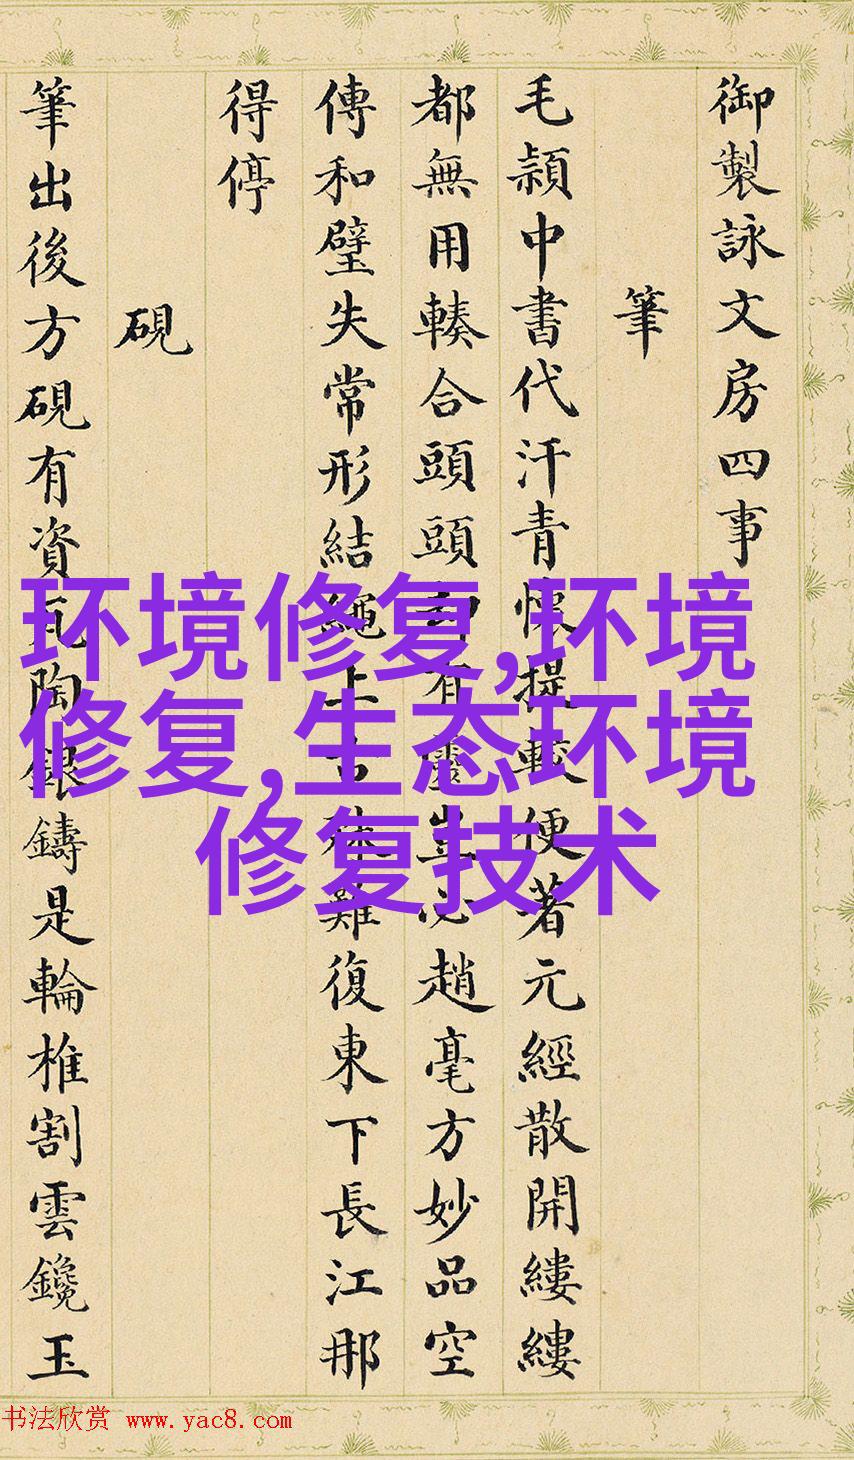 御製詠文房四事
筆
毛穎中書代汗青懷提較便著元經散開縷縷
都無用輳合頭頭却有靈豈必趙毫方妙品空
傳和璧失常形結繩上古殊難復東下長江那
得停
硯
筆出後方硯有資瓦陶銀鑄是輪椎割雲鑱玉
环境修复,环境
修复,生态环境
修复技术
书法欣赏 www.yac8.com